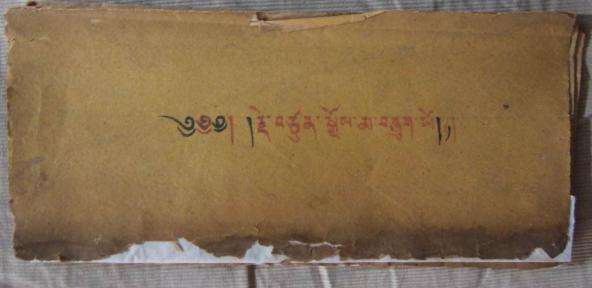 ༄༅༅། །རྗེ་བཙུན་སྒྲོལ་མ་བཞུགས་སོ།།